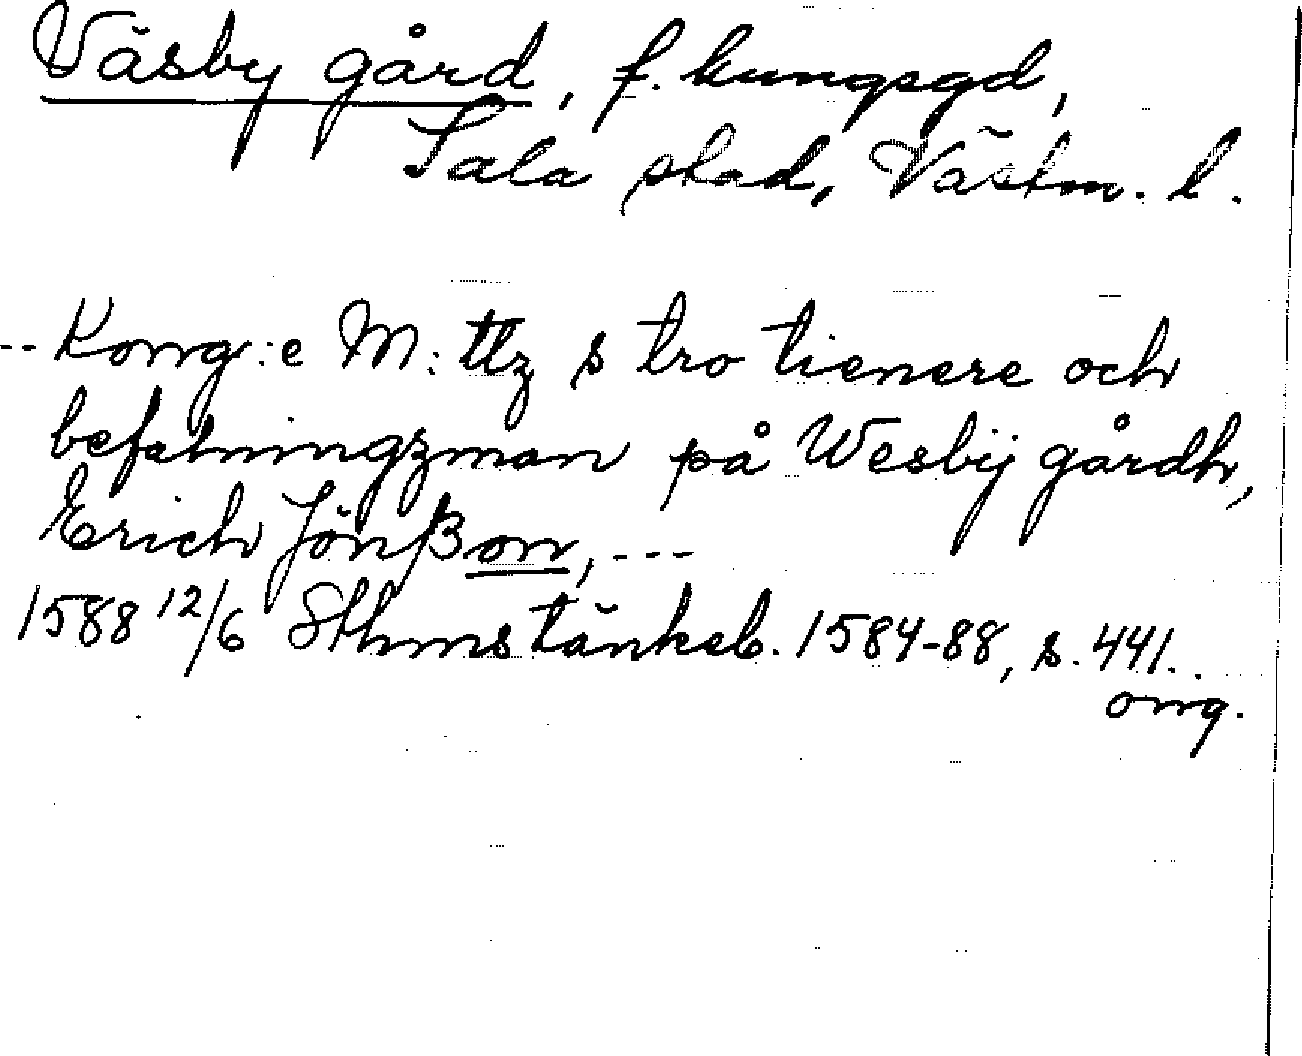 Väsby gård, f. kungsgd,
Sala stad, Västm. l.
-- Konng:e M:ttz s tro tienere och
befalningzman på Wesbÿ gårdh,
Erich Jönßonn, ---
1588 12/6 Sthms tänkeb. 1584-88, s. 441.
orig.